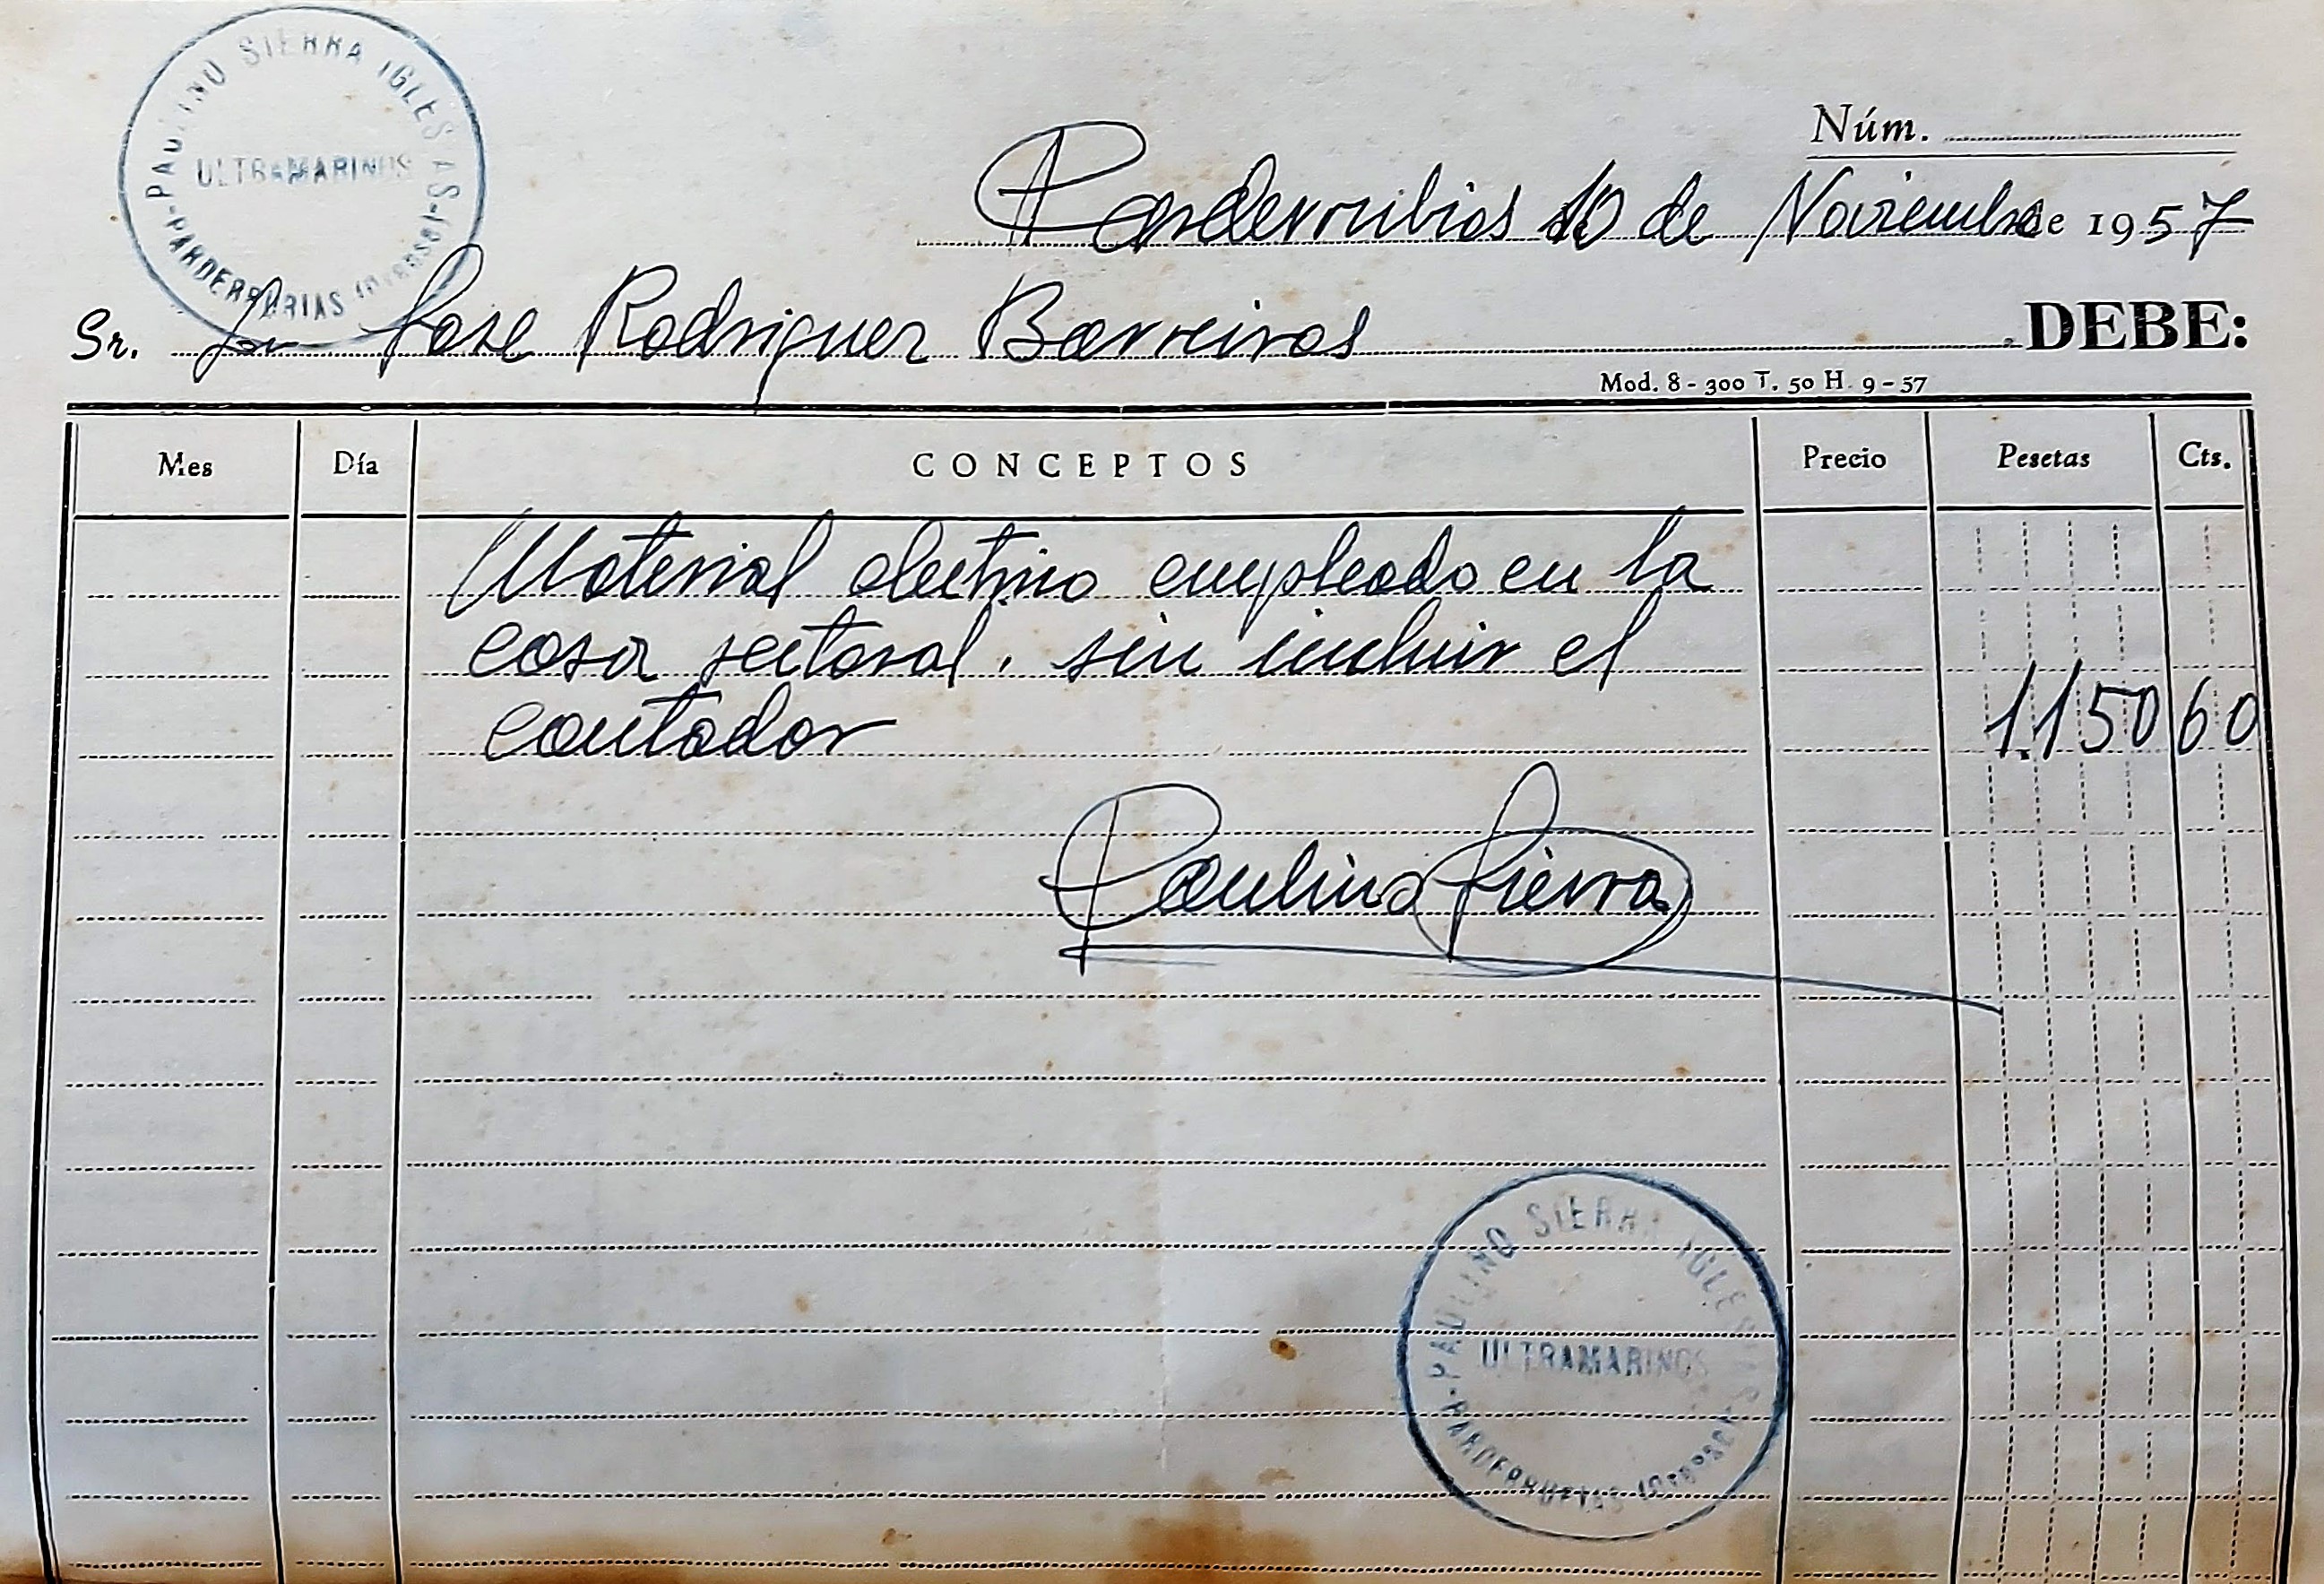 PAULINO SIERRA IGLESIAS
ULTRAMARINOS
Núm.
Parderrubias 10 de Noviembre de 1957
Sr. Don Jose Rodriguez Barreiros DEBE:
Mod. 8 - 300 T. 50 H. 9 - 57
Mes Día CONCEPTOS Precio Pesetas Cts.
Material electrico empleado en la
casa rectoral. sin incluir el
contador 1.150 60
Paulino Sierra
PAULINO SIERRA IGLESIAS
ULTRAMARINOS